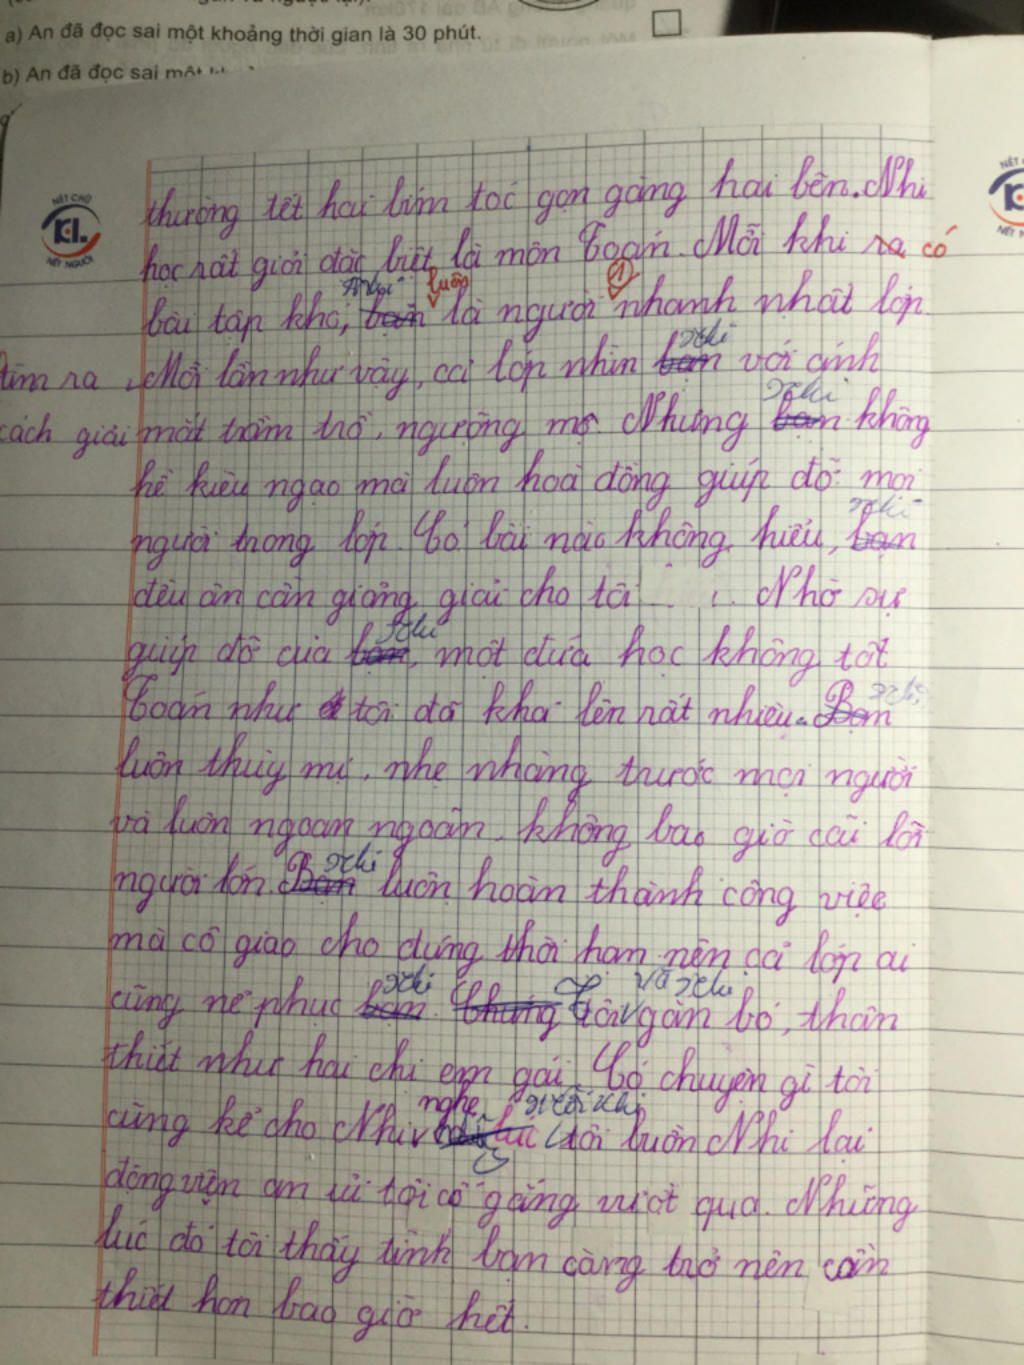 a) An đã đọc sai một khoảng thời gian là 30 phút.
b) An đã đọc sai một
NÉT CHỮ
KL.
NẾT NGƯỜI
thường tết hai bím tóc gọn gàng hai bên. Nhi
học rất giỏi đặc biệt là môn Toán. Mỗi khi ra có
Nhi luôn 1
bài tập khó, bạn là người nhanh nhất lớp
Nhi
tìm ra . Mỗi lần như vậy, cả lớp nhìn bạn với ánh
Nhi
cách giải mắt trầm trồ, ngưỡng mộ. Nhưng bạn không
hề kiêu ngạo mà luôn hoà đồng giúp đỡ mọi
Nhi
người trong lớp. Có bài nào không hiểu, bạn
đều ân cần giảng giải cho tôi . Nhờ sự
Nhi
giúp đỡ của bạn, một đứa học không tốt
Nhi
Toán như tôi đã khá lên rất nhiều. Bạn
luôn thùy mị, nhẹ nhàng trước mọi người
và luôn ngoan ngoãn, không bao giờ cãi lời
Nhi
người lớn. Bạn luôn hoàn thành công việc
mà cô giao cho đúng thời hạn nên cả lớp ai
Nhi T và Nhi
cũng nể phục bạn. Chúng tôi gắn bó, thân
thiết như hai chị em gái. Có chuyện gì tôi
nghe mỗi khi
cũng kể cho Nhi lúc tôi buồn Nhi lại
động viện an ủi tôi cố gắng vượt qua. Những
lúc đó tôi thấy tình bạn càng trở nên cần
thiết hơn bao giờ hết.